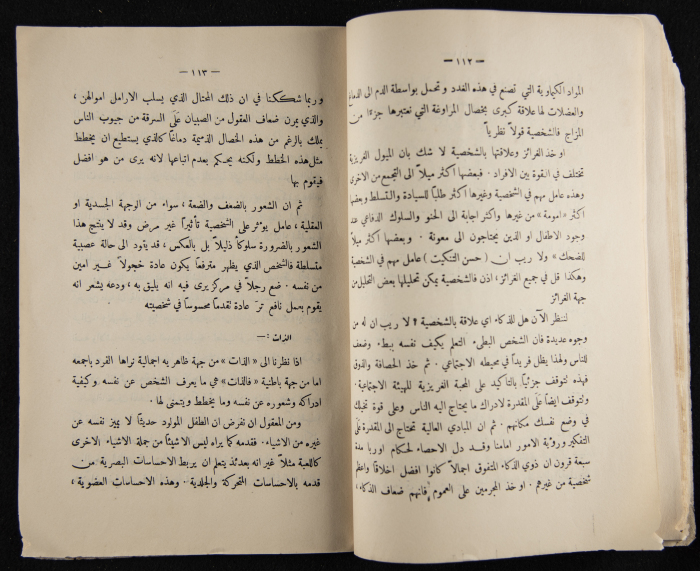 — ١١٢ —
المواد الكيماوية التي تصنع في هذه الغدد وتحمل بواسطة الدم الى الدماغ
والعضلات لها علاقة كبرى بخصال المراوغة التي نعتبرها جزءًا من
المزاج فالشخصية قولاً نظرياً
او خذ الغرائز وعلاقتها بالشخصية لا شك بان الميول الغريزية
تختلف في القوة بين الافراد . فبعضها اكثر ميلاً الى التجمع من الاخرى
وهذه عامل مهم في الشخصية وغيرها اكثر طلباً للسيادة والتسلط وبعضها
اكثر «امومة» من غيرها واكثر اجابة الى الحنو والسلوك الدفاعي عند
وجود الاطفال او الذين يحتاجون الى معونة . وبعضها اكثر ميلاً
للضحك" ولا ريب ان (حسن التنكيت) عامل مهم في الشخصية
وهكذا قل في جميع الغرائز، اذن فالشخصية يمكن تحليلها بعض التحليل من
جهة الغرائز
لننظر الآن هل للذكاء اي علاقة بالشخصية ؟ لا ريب ان له من
وجوه عديدة فان الشخص البطيء التعلم يكيف نفسه ببطء وضعف
للناس ولهذا يظل فريداً في محيطه الاجتماعي . ثم خذ الحصافة والذوق
فهذه تتوقف جزئياً بالتأكيد على المحبة الغريزية للهيئة الاجتماعية .
وتتوقف ايضاً على المقدرة لادراك ما يحتاج اليه الناس وعلى قوة تخيلك
في وضع نفسك مكانهم . ثم ان المبادي العالية تحتاج الى المقدرة على
التفكير ورؤية الامور امامنا وقد دل الاحصاء لحكام اوربا مدة
سبعة قرون ان ذوي الذكاء المتفوق اجمالاً كانوا افضل اخلاقاً واعظم
شخصية من غيرهم . او خذ المجرمين على العموم فانهم ضعاف الذكاء ،
— ١١٣ —
وربما شككنا في ان ذلك المحتال الذي يسلب الارامل اموالهن ،
والذي يمرن ضعاف العقول من الصبيان على السرقة من جيوب الناس
يملك بالرغم من هذه الخصال الذميمة دماغاً كالذي يستطيع ان يخطط
مثل هذه الخطط ولكنه يحكم بعدم اتباعها لانه يرى من هو افضل
فيقوم بها
ثم ان الشعور بالضعف والضعة ، سواء من الوجهة الجسدية او
العقلية ، عامل يوثر على الشخصية تأثيراً غير مرض وقد لا ينتج هذا
الشعور بالضرورة سلوكاً ذليلاً بل بالعكس ، قد يقود الى حالة عصبية
متسلطة فالشخص الذي يظهر مترفعاً يكون عادة خجولاً غير امين
من نفسه . ضع رجلاً في مركز يرى فيه انه يليق به ، ودعه يشعر انه
يقوم بعمل نافع ترَ عادة تقدماً محسوساً في شخصيته
الذات :—
اذا نظرنا الى «الذات» من جهة ظاهر به اجمالية نراها الفرد باجمعه
اما من جهة باطنية «فالذات» هي ما يعرف الشخص عن نفسه وكيفية
ادراكه وشعوره عن نفسه وما يخطط ويتمنى لها .
ومن المعقول ان نفرض ان الطفل المولود حديثاً لا يميز نفسه عن
غيره من الاشياء . فقدمه كما يراه ليس الا شيئاً من جملة الاشياء الاخرى
كاللعبة مثلاً غير انه بعدئذ يتعلم ان يربط الاحساسات البصرية من
قدمه بالاحساسات المتحركة والجلدية . وهذه الاحساسات العضوية ،